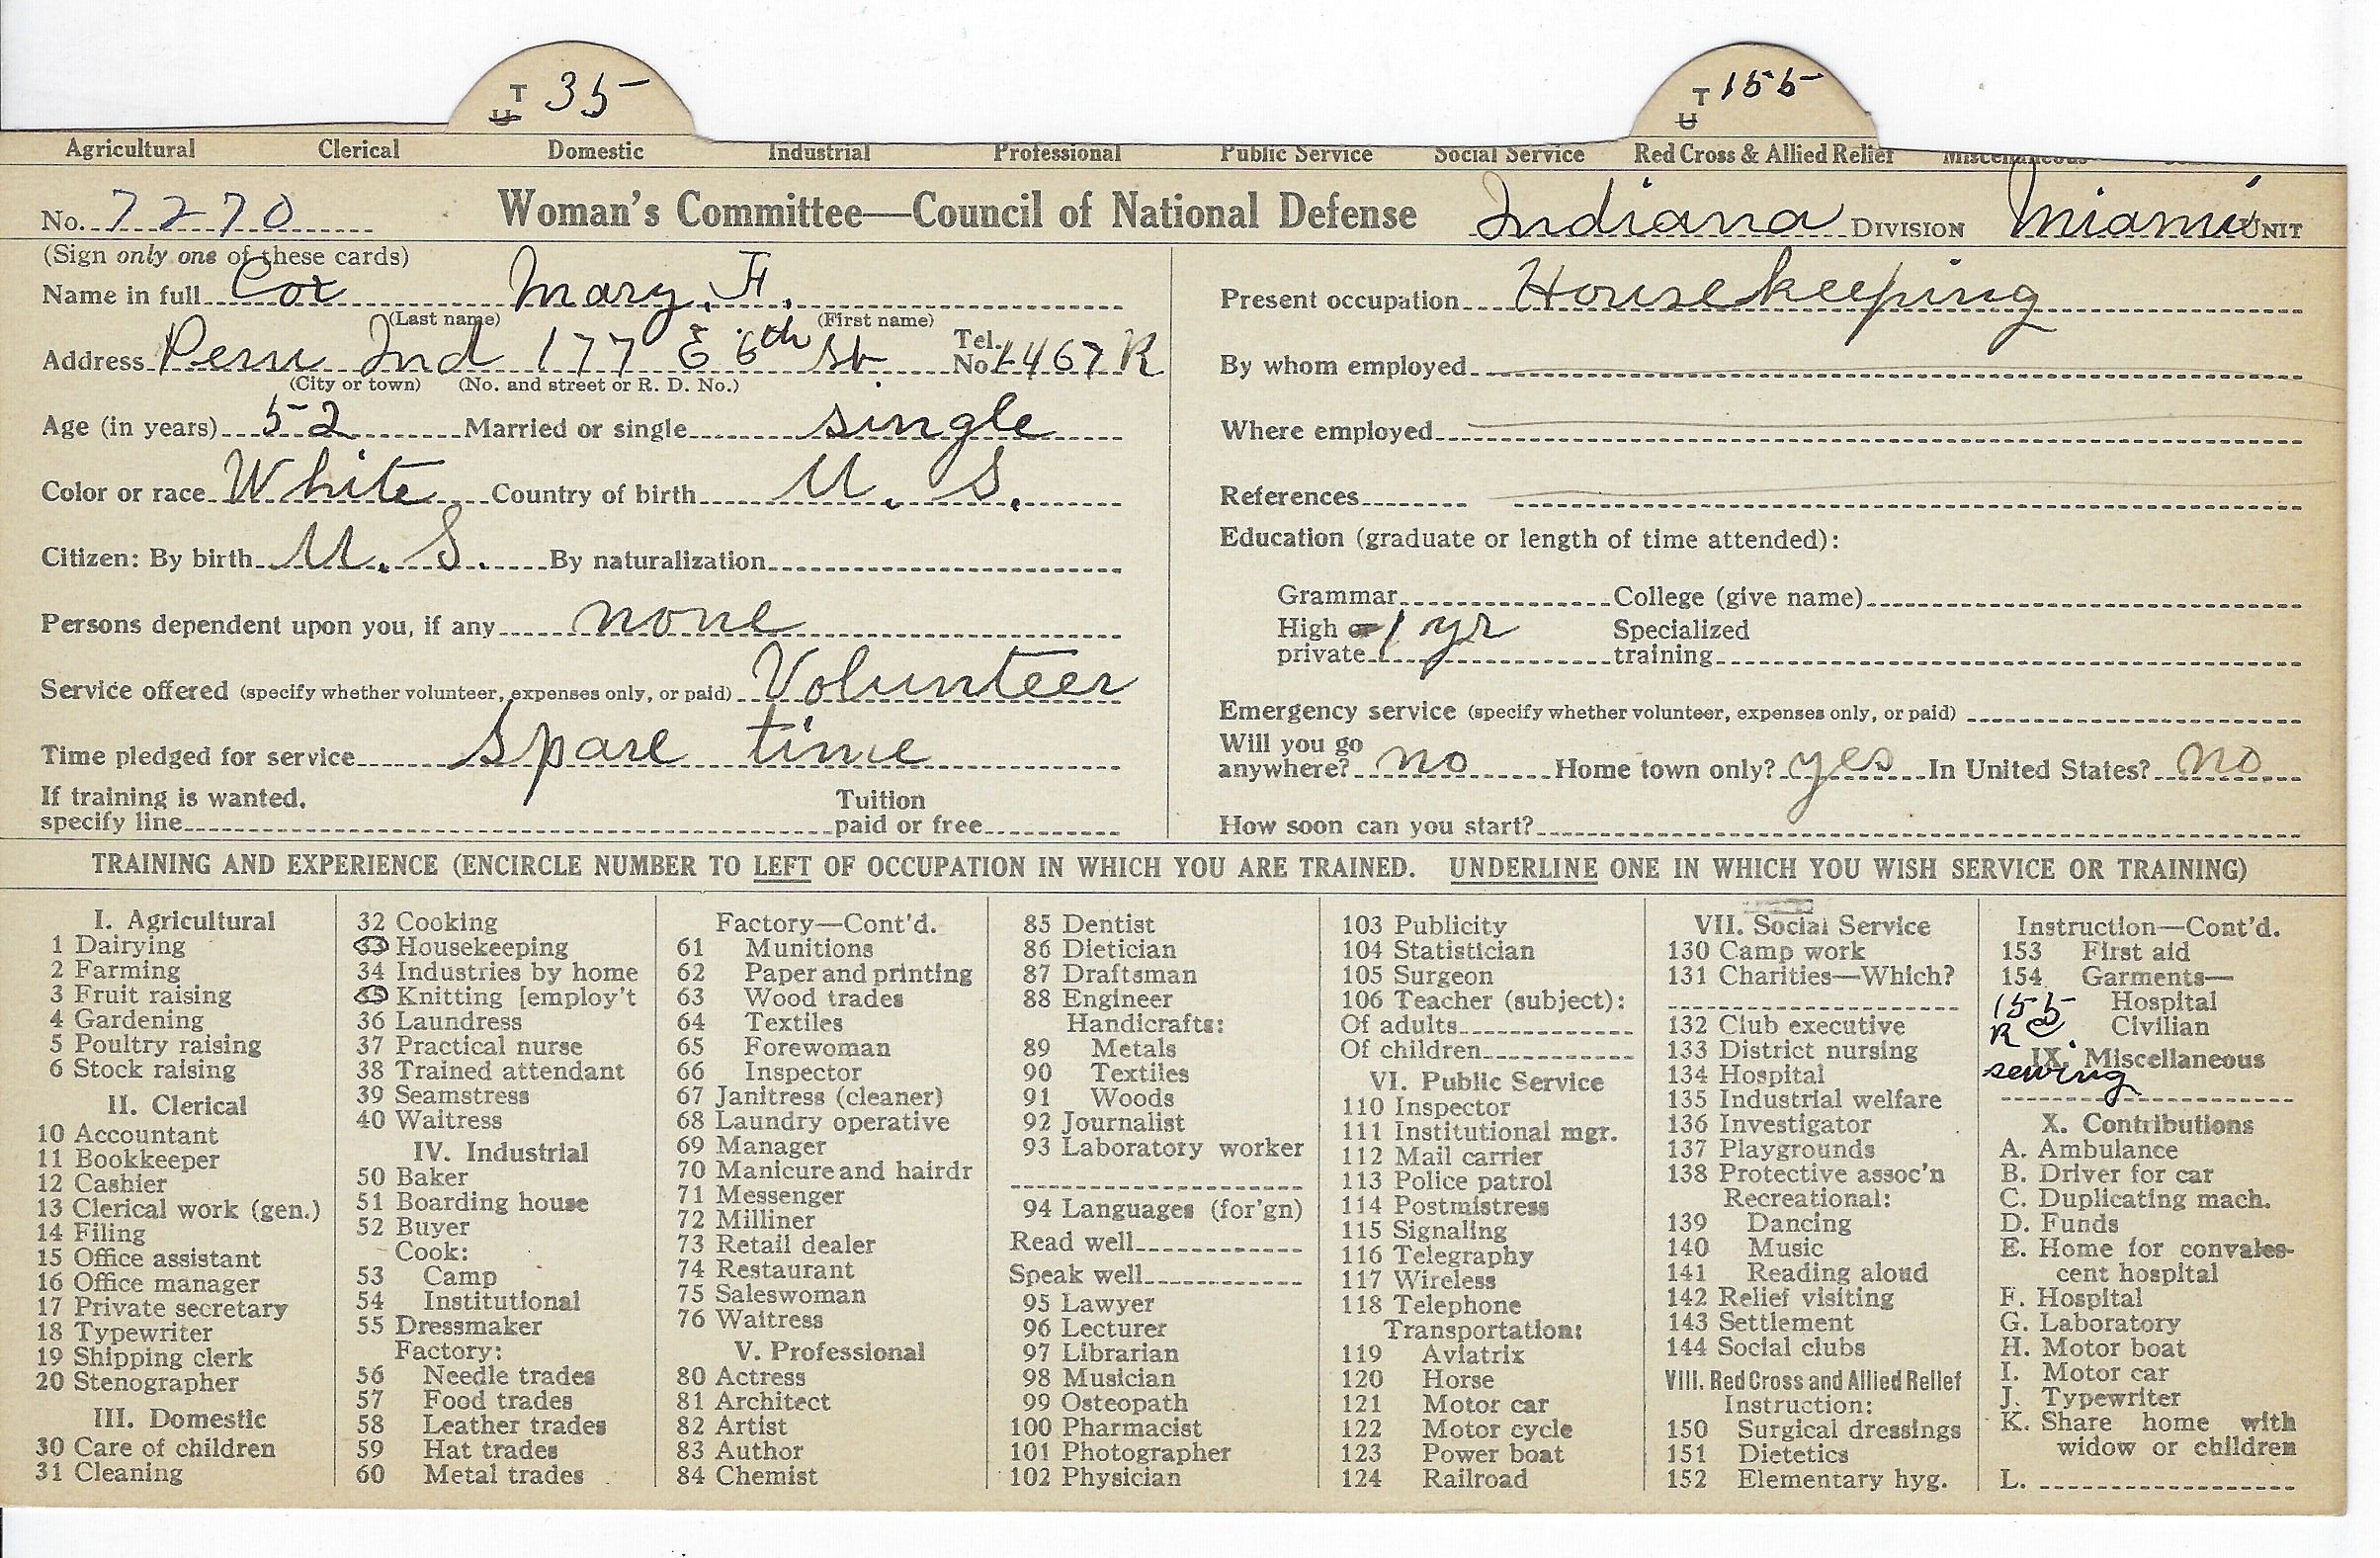 T 35
U
T 155
U
Agricultural Clerical Domestic Industrial Professional Public Service Social Service Red Cross & Allied Relief Miscellaneous
No. 7270 Woman's Committee—Council of National Defense Indiana DIVISION Miami UNIT
(Sign only one of these cards)
Name in full Cox Mary. F.
(Last name) (First name)
Address Peru Ind 177 E 6th St. Tel. No. 1467 R
(City or town) (No. and street or R. D. No.)
Age (in years) 52 Married or single single
Color or race White Country of birth U. S.
Citizen: By birth U. S. By naturalization
Persons dependent upon you, if any none
Service offered (specify whether volunteer, expenses only, or paid) Volunteer
Time pledged for service Spare time
If training is wanted, specify line Tuition paid or free
Present occupation Housekeeping
By whom employed
Where employed
References
Education (graduate or length of time attended):
Grammar College (give name)
High or private 1 yr Specialized training
Emergency service (specify whether volunteer, expenses only, or paid)
Will you go anywhere? no Home town only? yes In United States? no
How soon can you start?
TRAINING AND EXPERIENCE (ENCIRCLE NUMBER TO LEFT OF OCCUPATION IN WHICH YOU ARE TRAINED. UNDERLINE ONE IN WHICH YOU WISH SERVICE OR TRAINING)
I. Agricultural
1 Dairying
2 Farming
3 Fruit raising
4 Gardening
5 Poultry raising
6 Stock raising
II. Clerical
10 Accountant
11 Bookkeeper
12 Cashier
13 Clerical work (gen.)
14 Filing
15 Office assistant
16 Office manager
17 Private secretary
18 Typewriter
19 Shipping clerk
20 Stenographer
III. Domestic
30 Care of children
31 Cleaning
32 Cooking
33 Housekeeping
34 Industries by home
35 Knitting [employ't
36 Laundress
37 Practical nurse
38 Trained attendant
39 Seamstress
40 Waitress
IV. Industrial
50 Baker
51 Boarding house
52 Buyer
Cook:
53 Camp
54 Institutional
55 Dressmaker
Factory:
56 Needle trades
57 Food trades
58 Leather trades
59 Hat trades
60 Metal trades
Factory—Cont'd.
61 Munitions
62 Paper and printing
63 Wood trades
64 Textiles
65 Forewoman
66 Inspector
67 Janitress (cleaner)
68 Laundry operative
69 Manager
70 Manicure and hairdr
71 Messenger
72 Milliner
73 Retail dealer
74 Restaurant
75 Saleswoman
76 Waitress
V. Professional
80 Actress
81 Architect
82 Artist
83 Author
84 Chemist
85 Dentist
86 Dietician
87 Draftsman
88 Engineer
Handicrafts:
89 Metals
90 Textiles
91 Woods
92 Journalist
93 Laboratory worker
94 Languages (for'gn)
Read well
Speak well
95 Lawyer
96 Lecturer
97 Librarian
98 Musician
99 Osteopath
100 Pharmacist
101 Photographer
102 Physician
103 Publicity
104 Statistician
105 Surgeon
106 Teacher (subject):
Of adults
Of children
VI. Public Service
110 Inspector
111 Institutional mgr.
112 Mail carrier
113 Police patrol
114 Postmistress
115 Signaling
116 Telegraphy
117 Wireless
118 Telephone
Transportation:
119 Aviatrix
120 Horse
121 Motor car
122 Motor cycle
123 Power boat
124 Railroad
VII. Social Service
130 Camp work
131 Charities—Which?
132 Club executive
133 District nursing
134 Hospital
135 Industrial welfare
136 Investigator
137 Playgrounds
138 Protective assoc'n
Recreational:
139 Dancing
140 Music
141 Reading aloud
142 Relief visiting
143 Settlement
144 Social clubs
VIII. Red Cross and Allied Relief
Instruction:
150 Surgical dressings
151 Dietetics
152 Elementary hyg.
Instruction—Cont'd.
153 First aid
154 Garments—
155 Hospital
R C. Civilian
IX. Miscellaneous
sewing
X. Contributions
A. Ambulance
B. Driver for car
C. Duplicating mach.
D. Funds
E. Home for convales-
cent hospital
F. Hospital
G. Laboratory
H. Motor boat
I. Motor car
J. Typewriter
K. Share home with
widow or children
L.